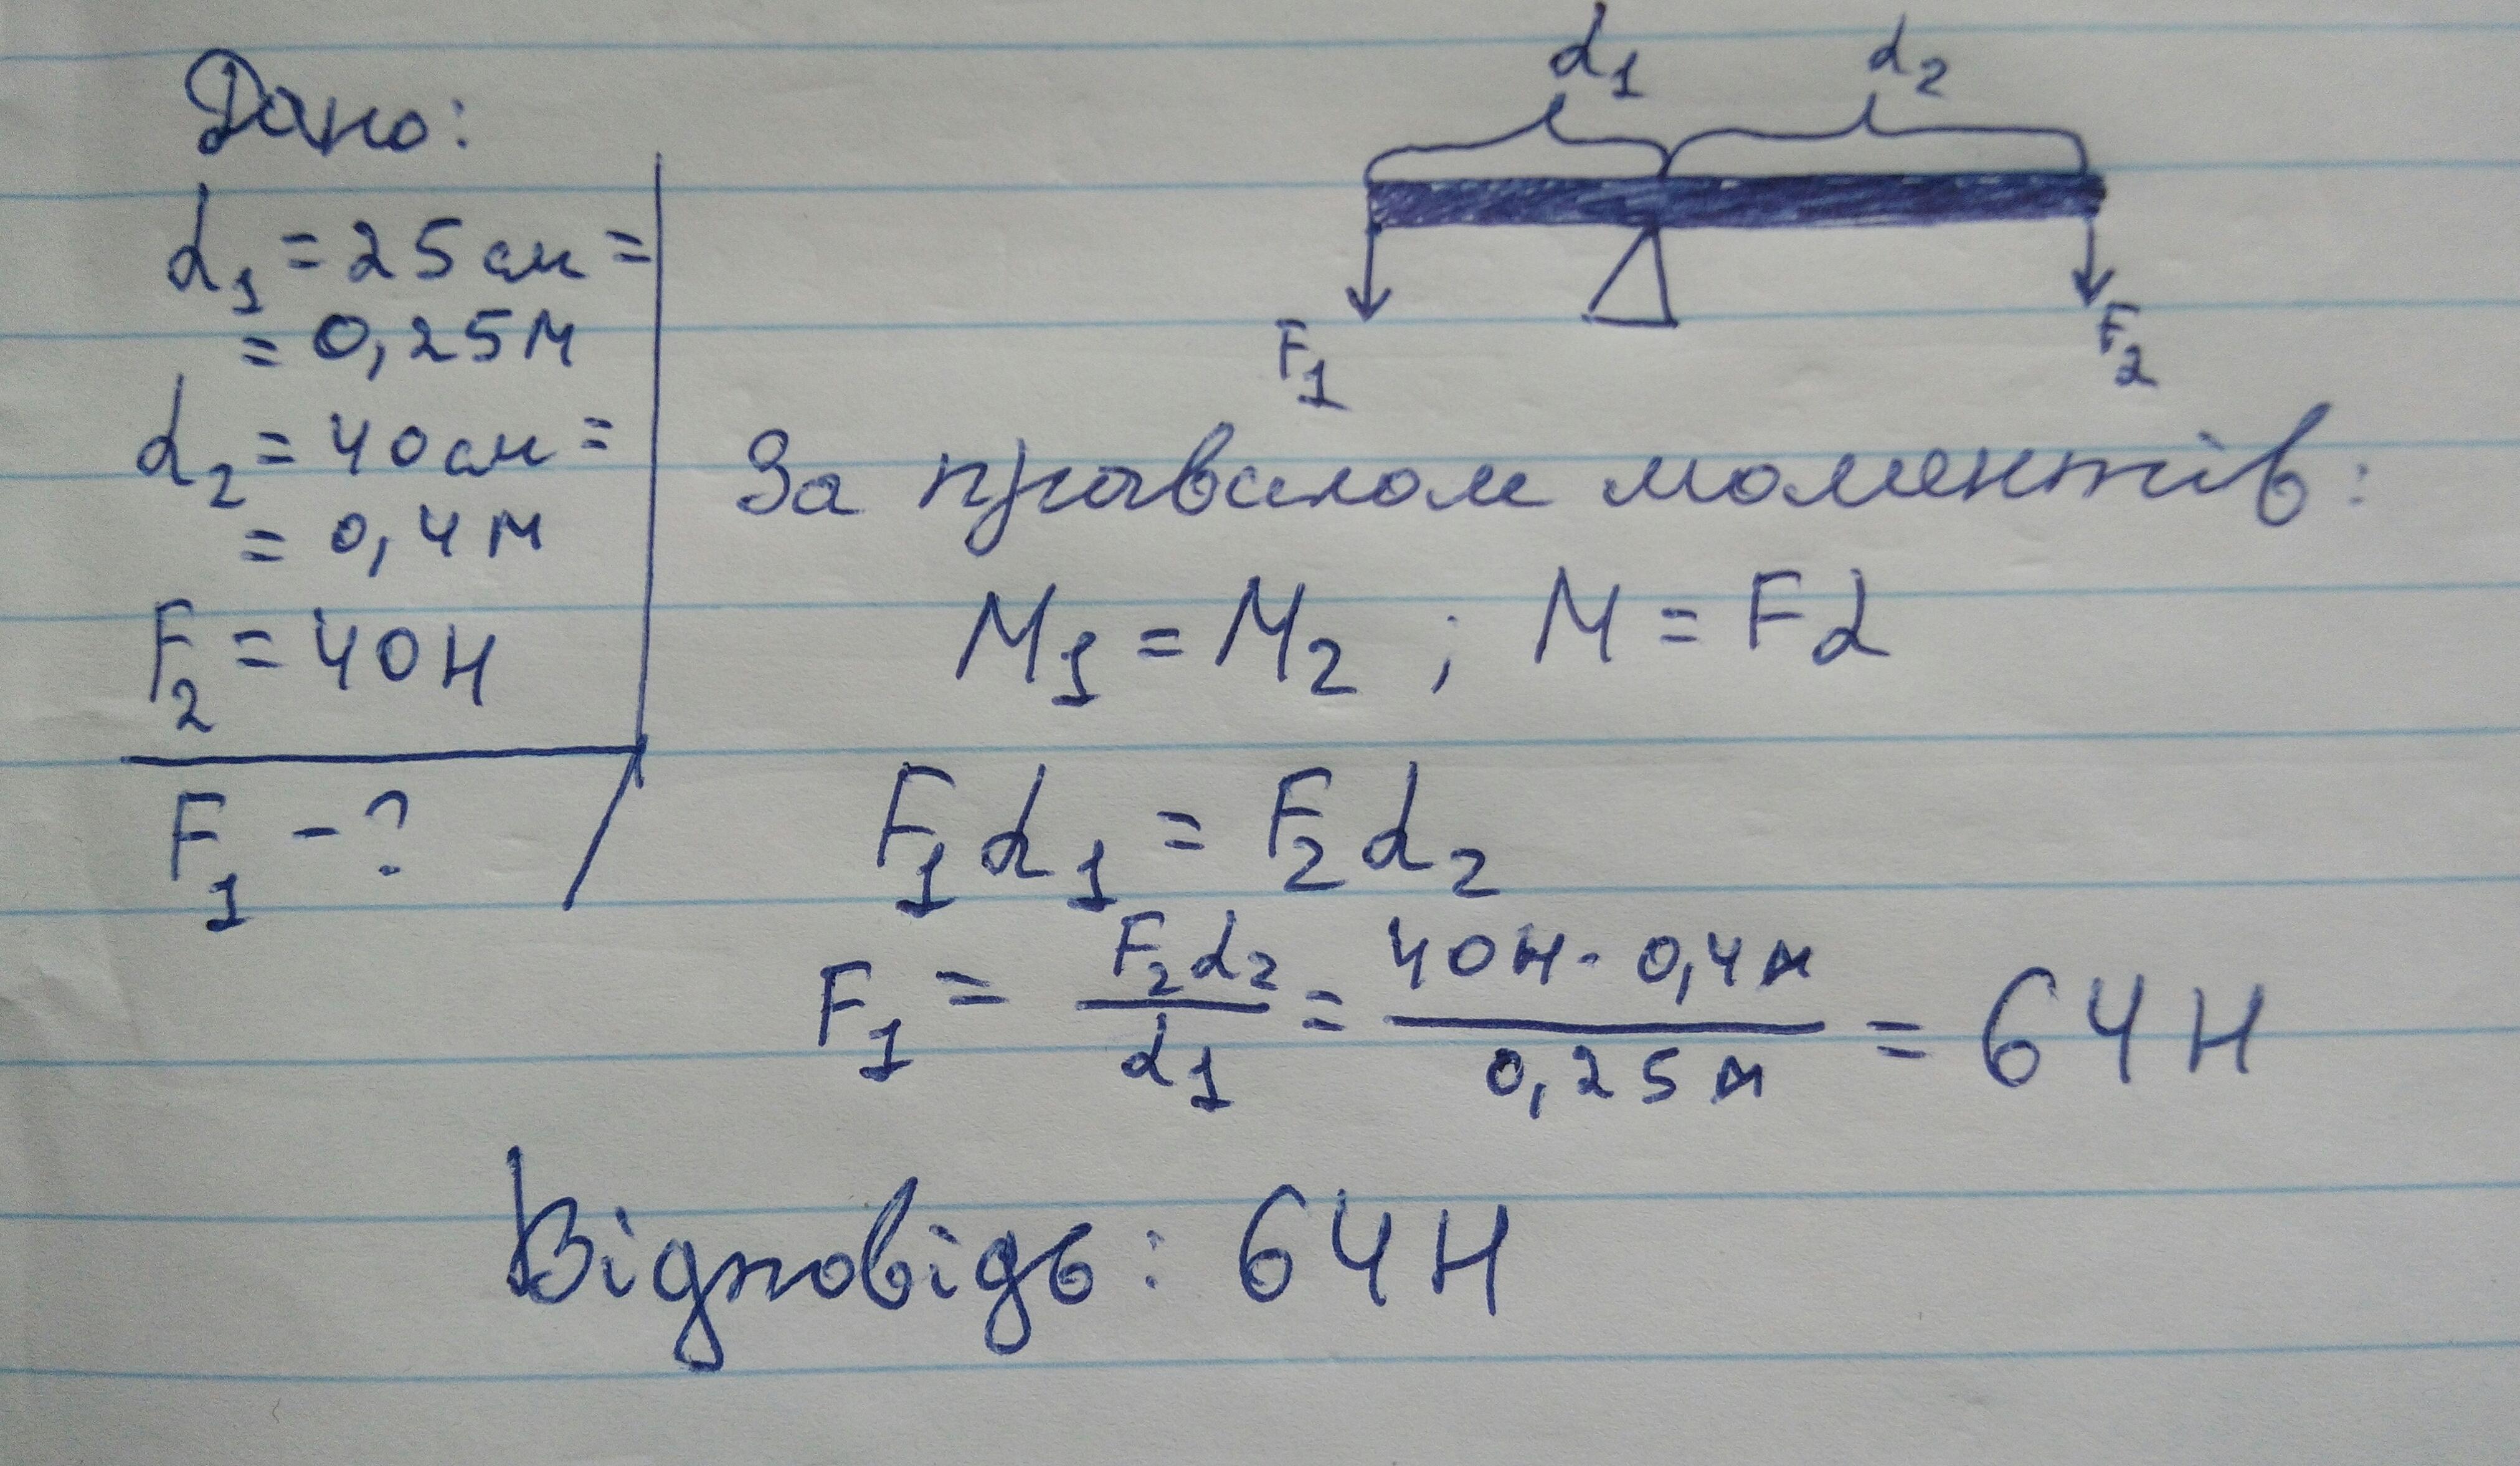 Дано:
d₁ = 25 см =
= 0,25 м
d₂ = 40 см =
= 0,4 м
F₂ = 40 Н
F₁ - ?
d₁ d₂
F₁ F₂
За правилом моментів:
M₁ = M₂ ; M = Fd
F₁d₁ = F₂d₂
F₁ = F₂d₂ / d₁ = 40Н · 0,4м / 0,25м = 64 Н
Відповідь: 64 Н